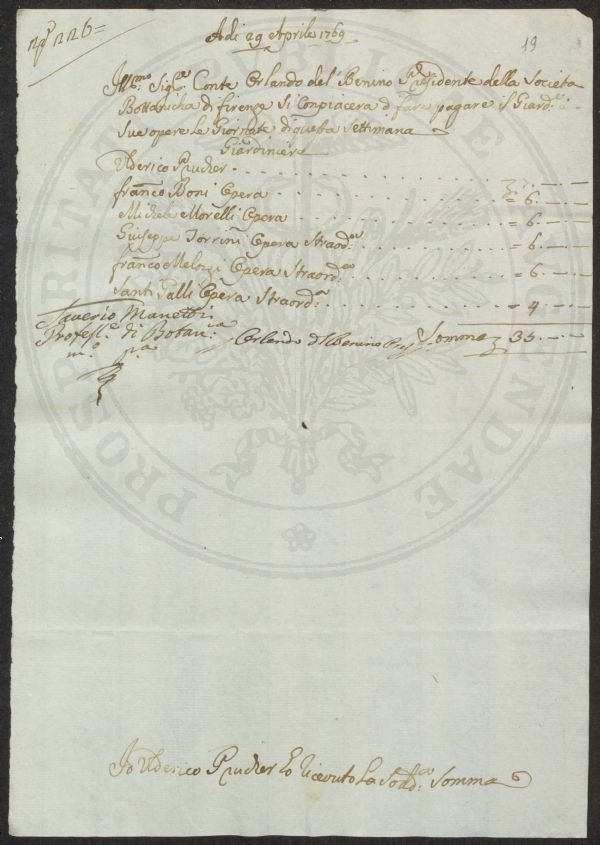 N.º 226=
Adi 29 Aprile 1769
19
Ill.mo Sig.re Conte Orlando del Benino Presidente della Societa
Bottanicha di firenze Si Conpiacera di fare pagare il Giard.e è
Sue opere Le Giornate di questa Settimana
Giardiniere
Uderico Prucker 7
franco Boni Opera = 6
Michele Morelli Opera = 6
Giuseppe Torrini Opera Straord. = 6
franco Melozzi Opera Straord. = 6
Santi Galli Opera Straord. = 4
Saverio Manetti
Profess.e di Botan.ca
m.o p.a
Orlando del Benino Pres. Somma 35
PROSPERITATI PUBLICAE AUGENDAE
Io Uderico Prucker Ho Riceuto La Sod.a Somma